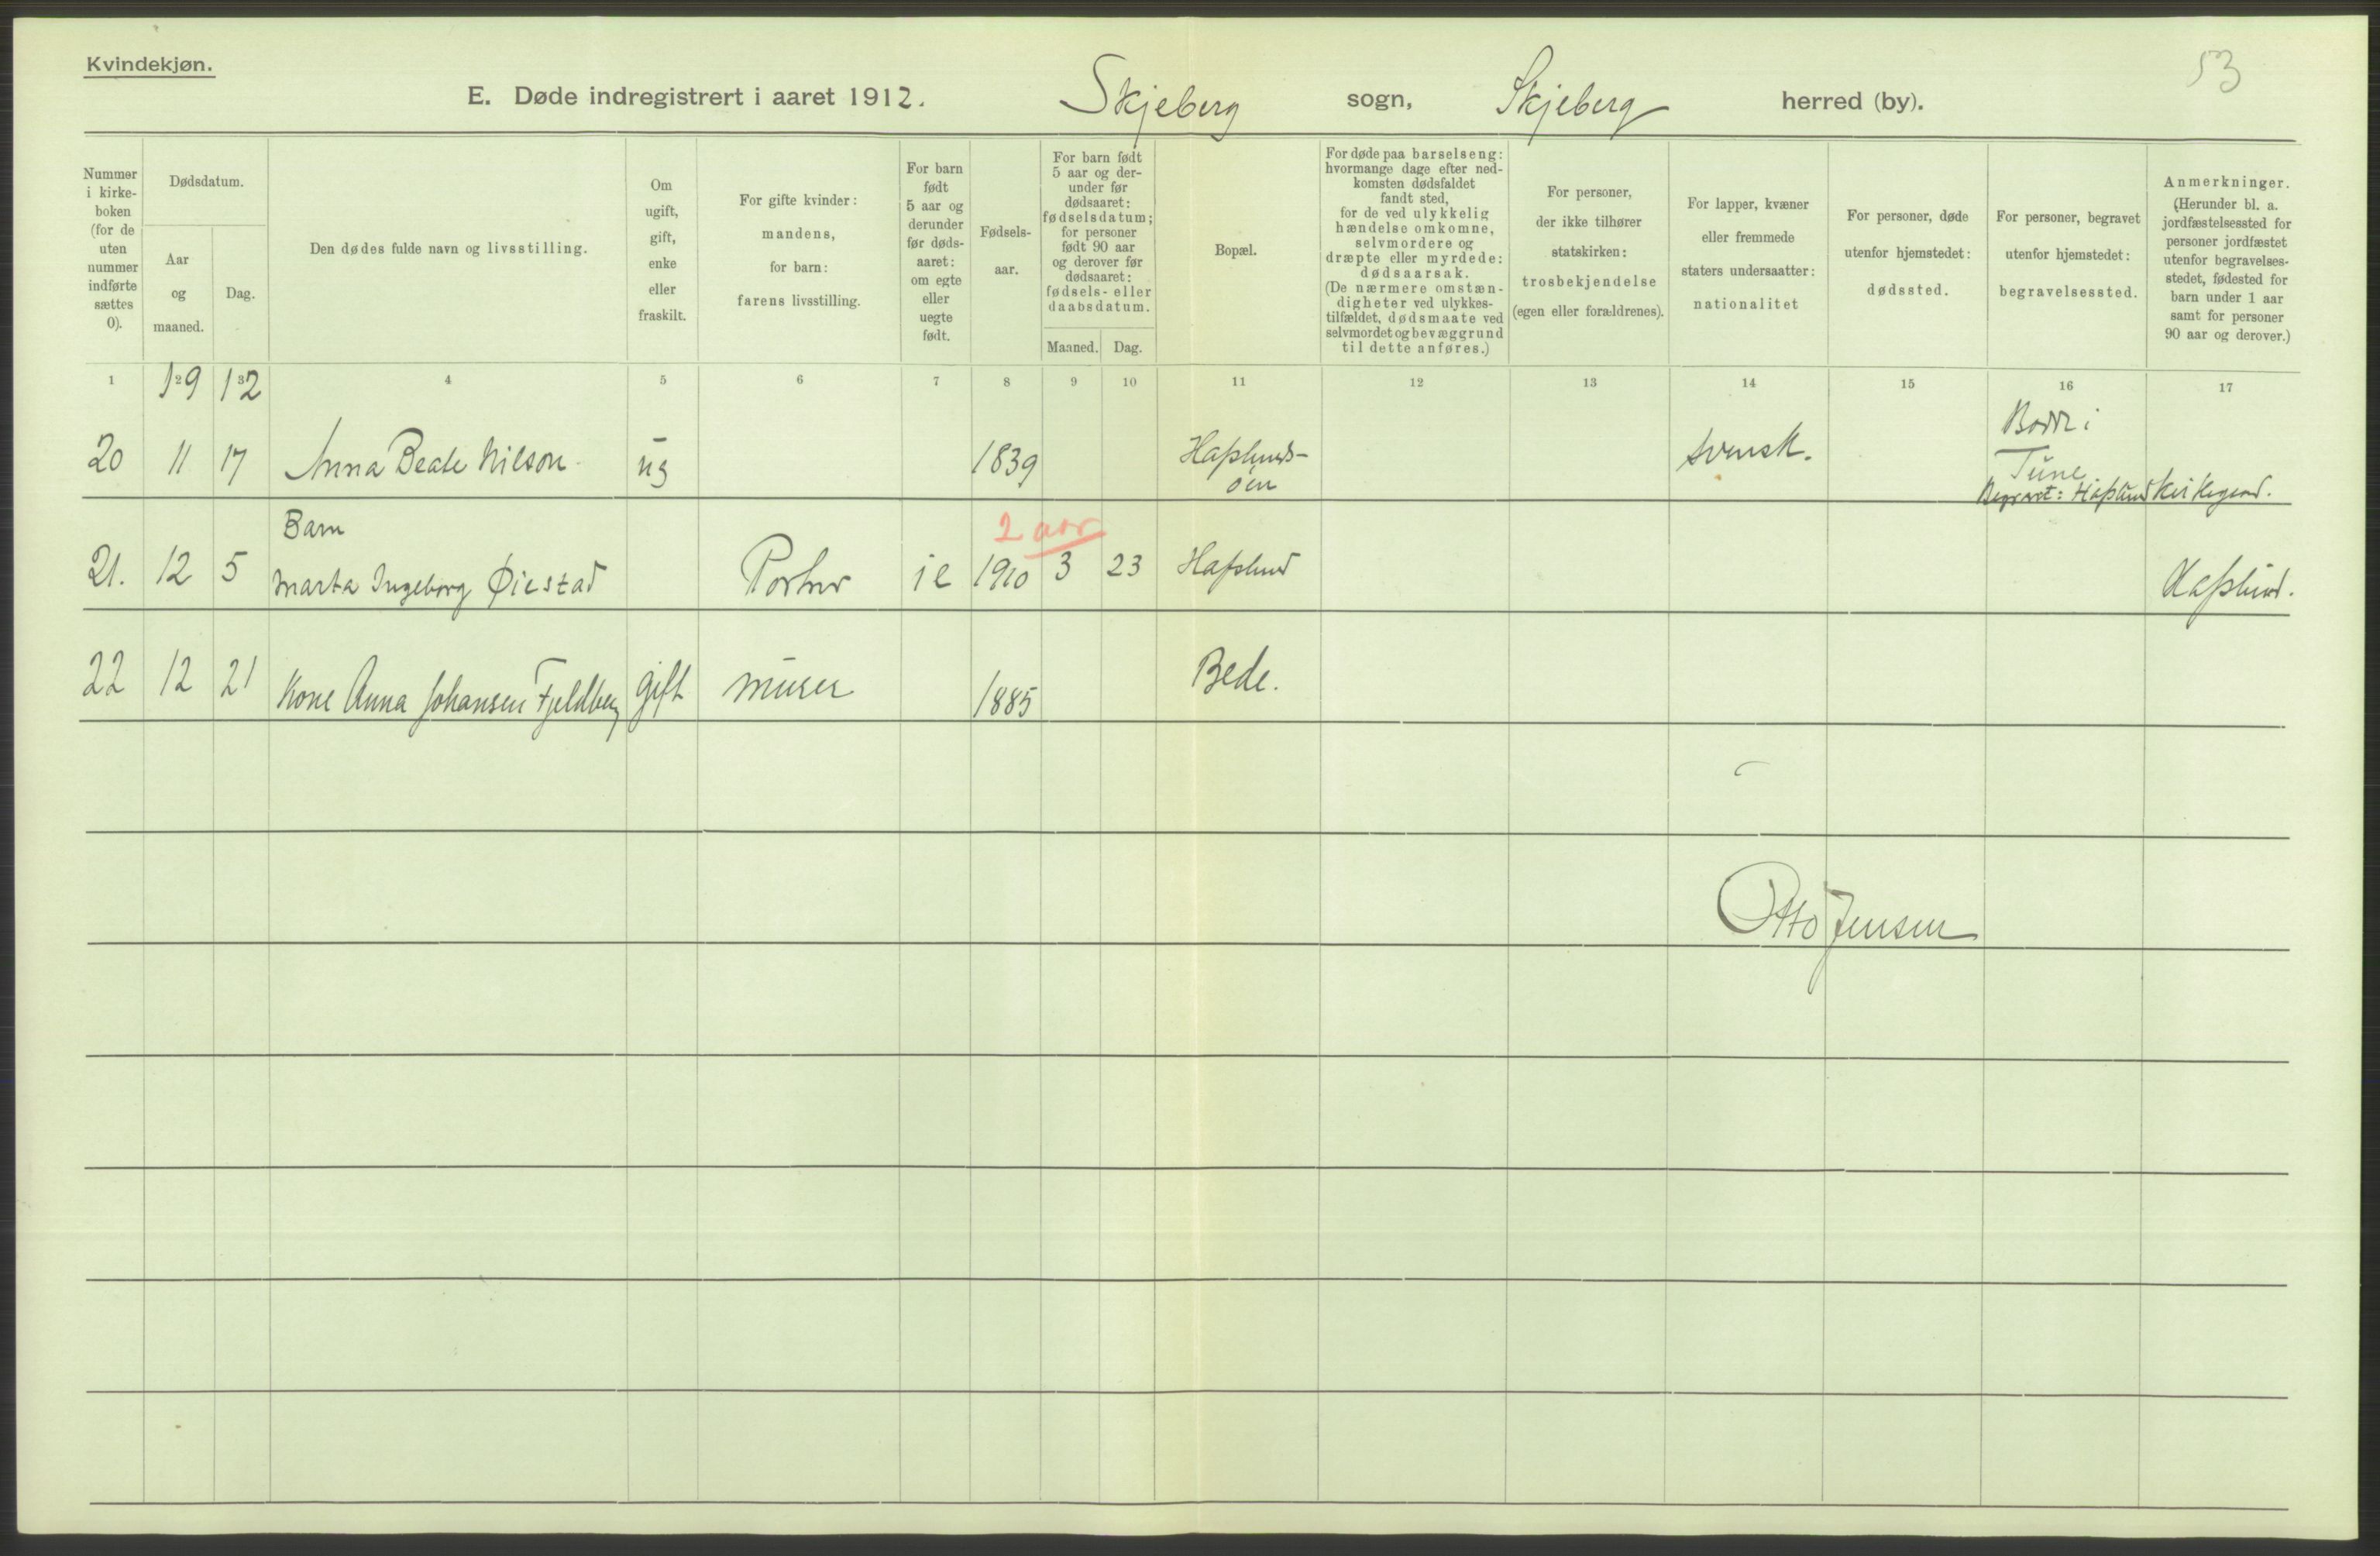 Kvindekjøn.
53
E. Døde indregistrert i aaret 1912. Skjeberg sogn, Skjeberg herred (by).
Nummer i kirke-boken (for de uten nummer indførte sættes 0).
Dødsdatum.
Aar og maaned.
Dag.
Den dødes fulde navn og livsstilling.
Om ugift, gift, enke eller fraskilt.
For gifte kvinder: mandens, for barn: farens livsstilling.
For barn født 5 aar og derunder før døds-aaret: om egte eller uegte født.
Fødsels-aar.
For barn født 5 aar og der-under før dødsaaret: fødselsdatum; for personer født 90 aar og derover før dødsaaret: fødsels- eller daabsdatum.
Maaned. Dag.
Bopæl.
For døde paa barselseng: hvormange dage efter ned-komsten dødsfaldet fandt sted, for de ved ulykkelig hændelse omkomne, selvmordere og dræpte eller myrdede: dødsaarsak. (De nærmere omstæn-digheter ved ulykkes-tilfældet, dødsmaate ved selvmordet og bevæggrund til dette anføres.)
For personer, der ikke tilhører statskirken: trosbekjendelse (egen eller forældrenes).
For lapper, kvæner eller fremmede staters undersaatter: nationalitet
For personer, døde utenfor hjemstedet: dødssted.
For personer, begravet utenfor hjemstedet: begravelsessted.
Anmerkninger. (Herunder bl. a. jordfæstelsessted for personer jordfæstet utenfor begravelses-stedet, fødested for barn under 1 aar samt for personer 90 aar og derover.)
1 2 3 4 5 6 7 8 9 10 11 12 13 14 15 16 17
19 12
20 11 17 Anna Beate Nilson ug 1839 Hafslunds-øen svensk. i Tune
Begravet: Hafslund Kirkegaard.
Barn 2 aar
21. 12 5 Marta Ingeborg Øiestad Portner ie 1910 3 23 Hafslund Hafslund.
22 12 21 Kone Anna Johansen Fjeldberg gift murer 1885 Bede.
Otto Jensen